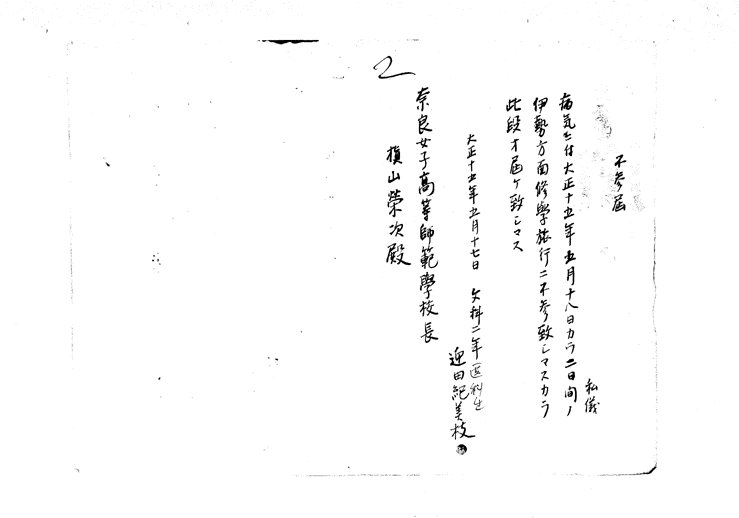 不参届
私儀
病気ニ付大正十五年五月十八日カラ二日間ノ
伊勢方面修學旅行ニ不参致シマスカラ
此段オ届ケ致シマス
大正十五年五月十七日 文科二年選科生
迎田紀美枝
奈良女子高等師範學校長
槇山榮次殿
2